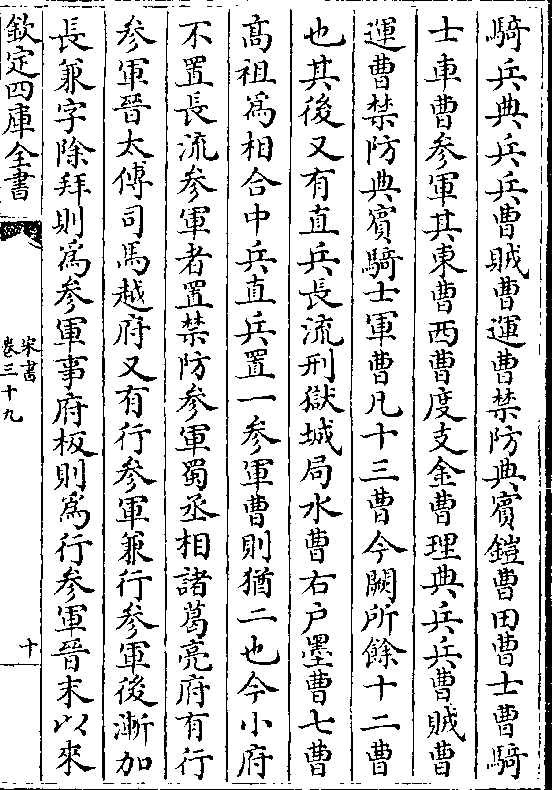 騎兵典兵兵曹賊曹運曹禁防典賓鎧曹田曹士曹騎
士車曹參軍其東曹西曹度支金曹理典兵兵曹賊曹
運曹禁防典賓騎士軍曹凡十三曹今闕所餘十二曹
也其後又有直兵長流刑獄城局水曹右户墨曹七曹
髙祖爲相合中兵直兵置一參軍曹則猶二也今小府
不置長流參軍者置禁防參軍蜀丞相諸葛亮府有行
參軍晉太傅司馬越府又有行參軍兼行參軍後漸加
長兼字除拜則爲參軍事府板則爲行參軍晉末以來
欽定四庫全書
宋書
卷三十九
十